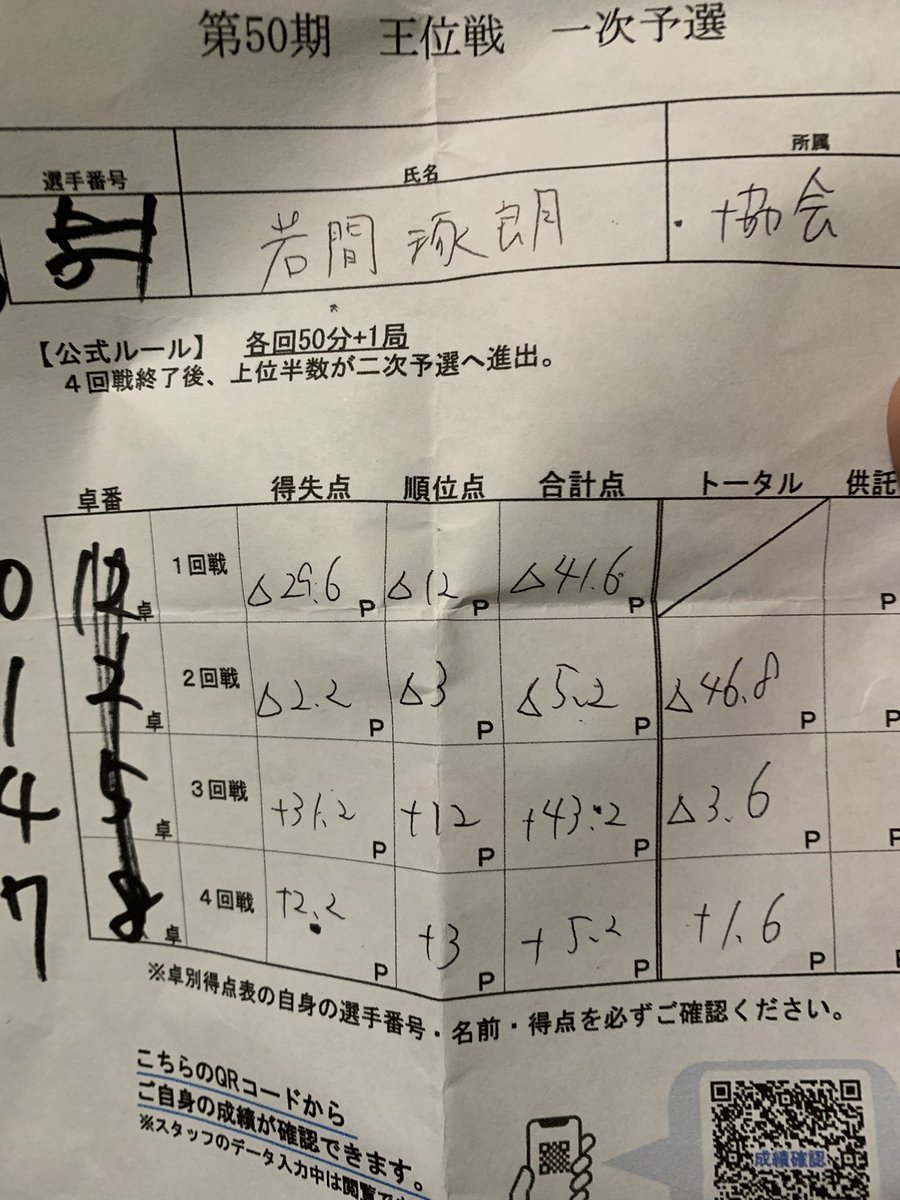 第50期 王位戦 一次予選
選手番号 氏名 所属
岩間 琢朗 ・協会
【公式ルール】 各回50分+1局
4回戦終了後、上位半数が二次予選へ進出。
卓番 得失点 順位点 合計点 トータル 供託
0 12卓 1回戦 △29.6P △12P △41.6P P
1 2卓 2回戦 △2.2P △3P △5.2P △46.8P P
4 5卓 3回戦 +31.2P +12P +43.2P △3.6P P
7 8卓 4回戦 +2.2P +3P +5.2P +1.6P P
※卓別得点表の自身の選手番号・名前・得点を必ずご確認ください。
こちらのQRコードから
ご自身の成績が確認できます。
※スタッフのデータ入力中は閲覧でき
成績確認